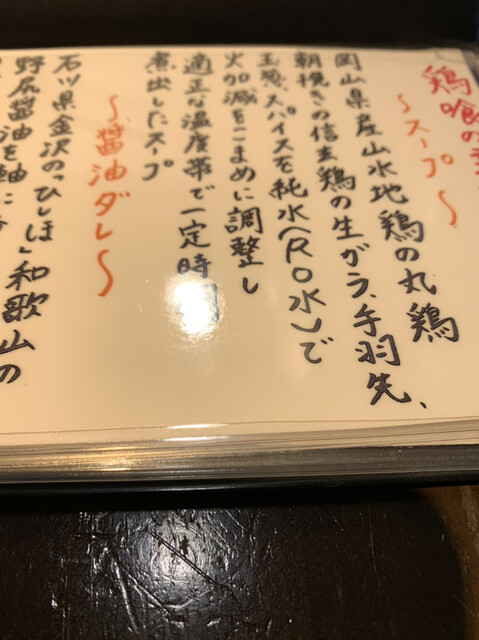 鶏喰の
〜スープ〜
岡山県産山水地鶏の丸鶏
朝挽きの信玄鶏の生がら、手羽先、
玉葱、スパイスを純水(RO水)で
火加減をこまめに調整し
適正な温度帯で一定時間
煮出したスープ
〜醤油ダレ〜
石川県金沢の「ひしほ」和歌山の
野尻醤油を軸に